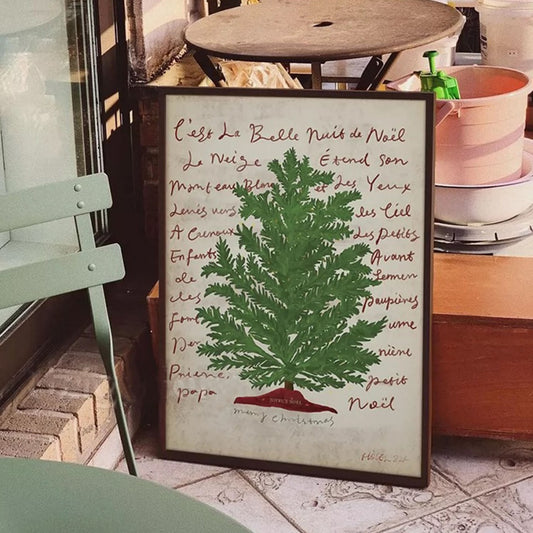 C'est La Belle Nuit de Noël
La Neige Étend Son
Manteau Blanc et Les Yeux
Levés vers les Ciel
A Genoux Les Petits
Enfants Avant
de
les paupières
une
Dernière
Prière petit
papa Noël
merry christmas